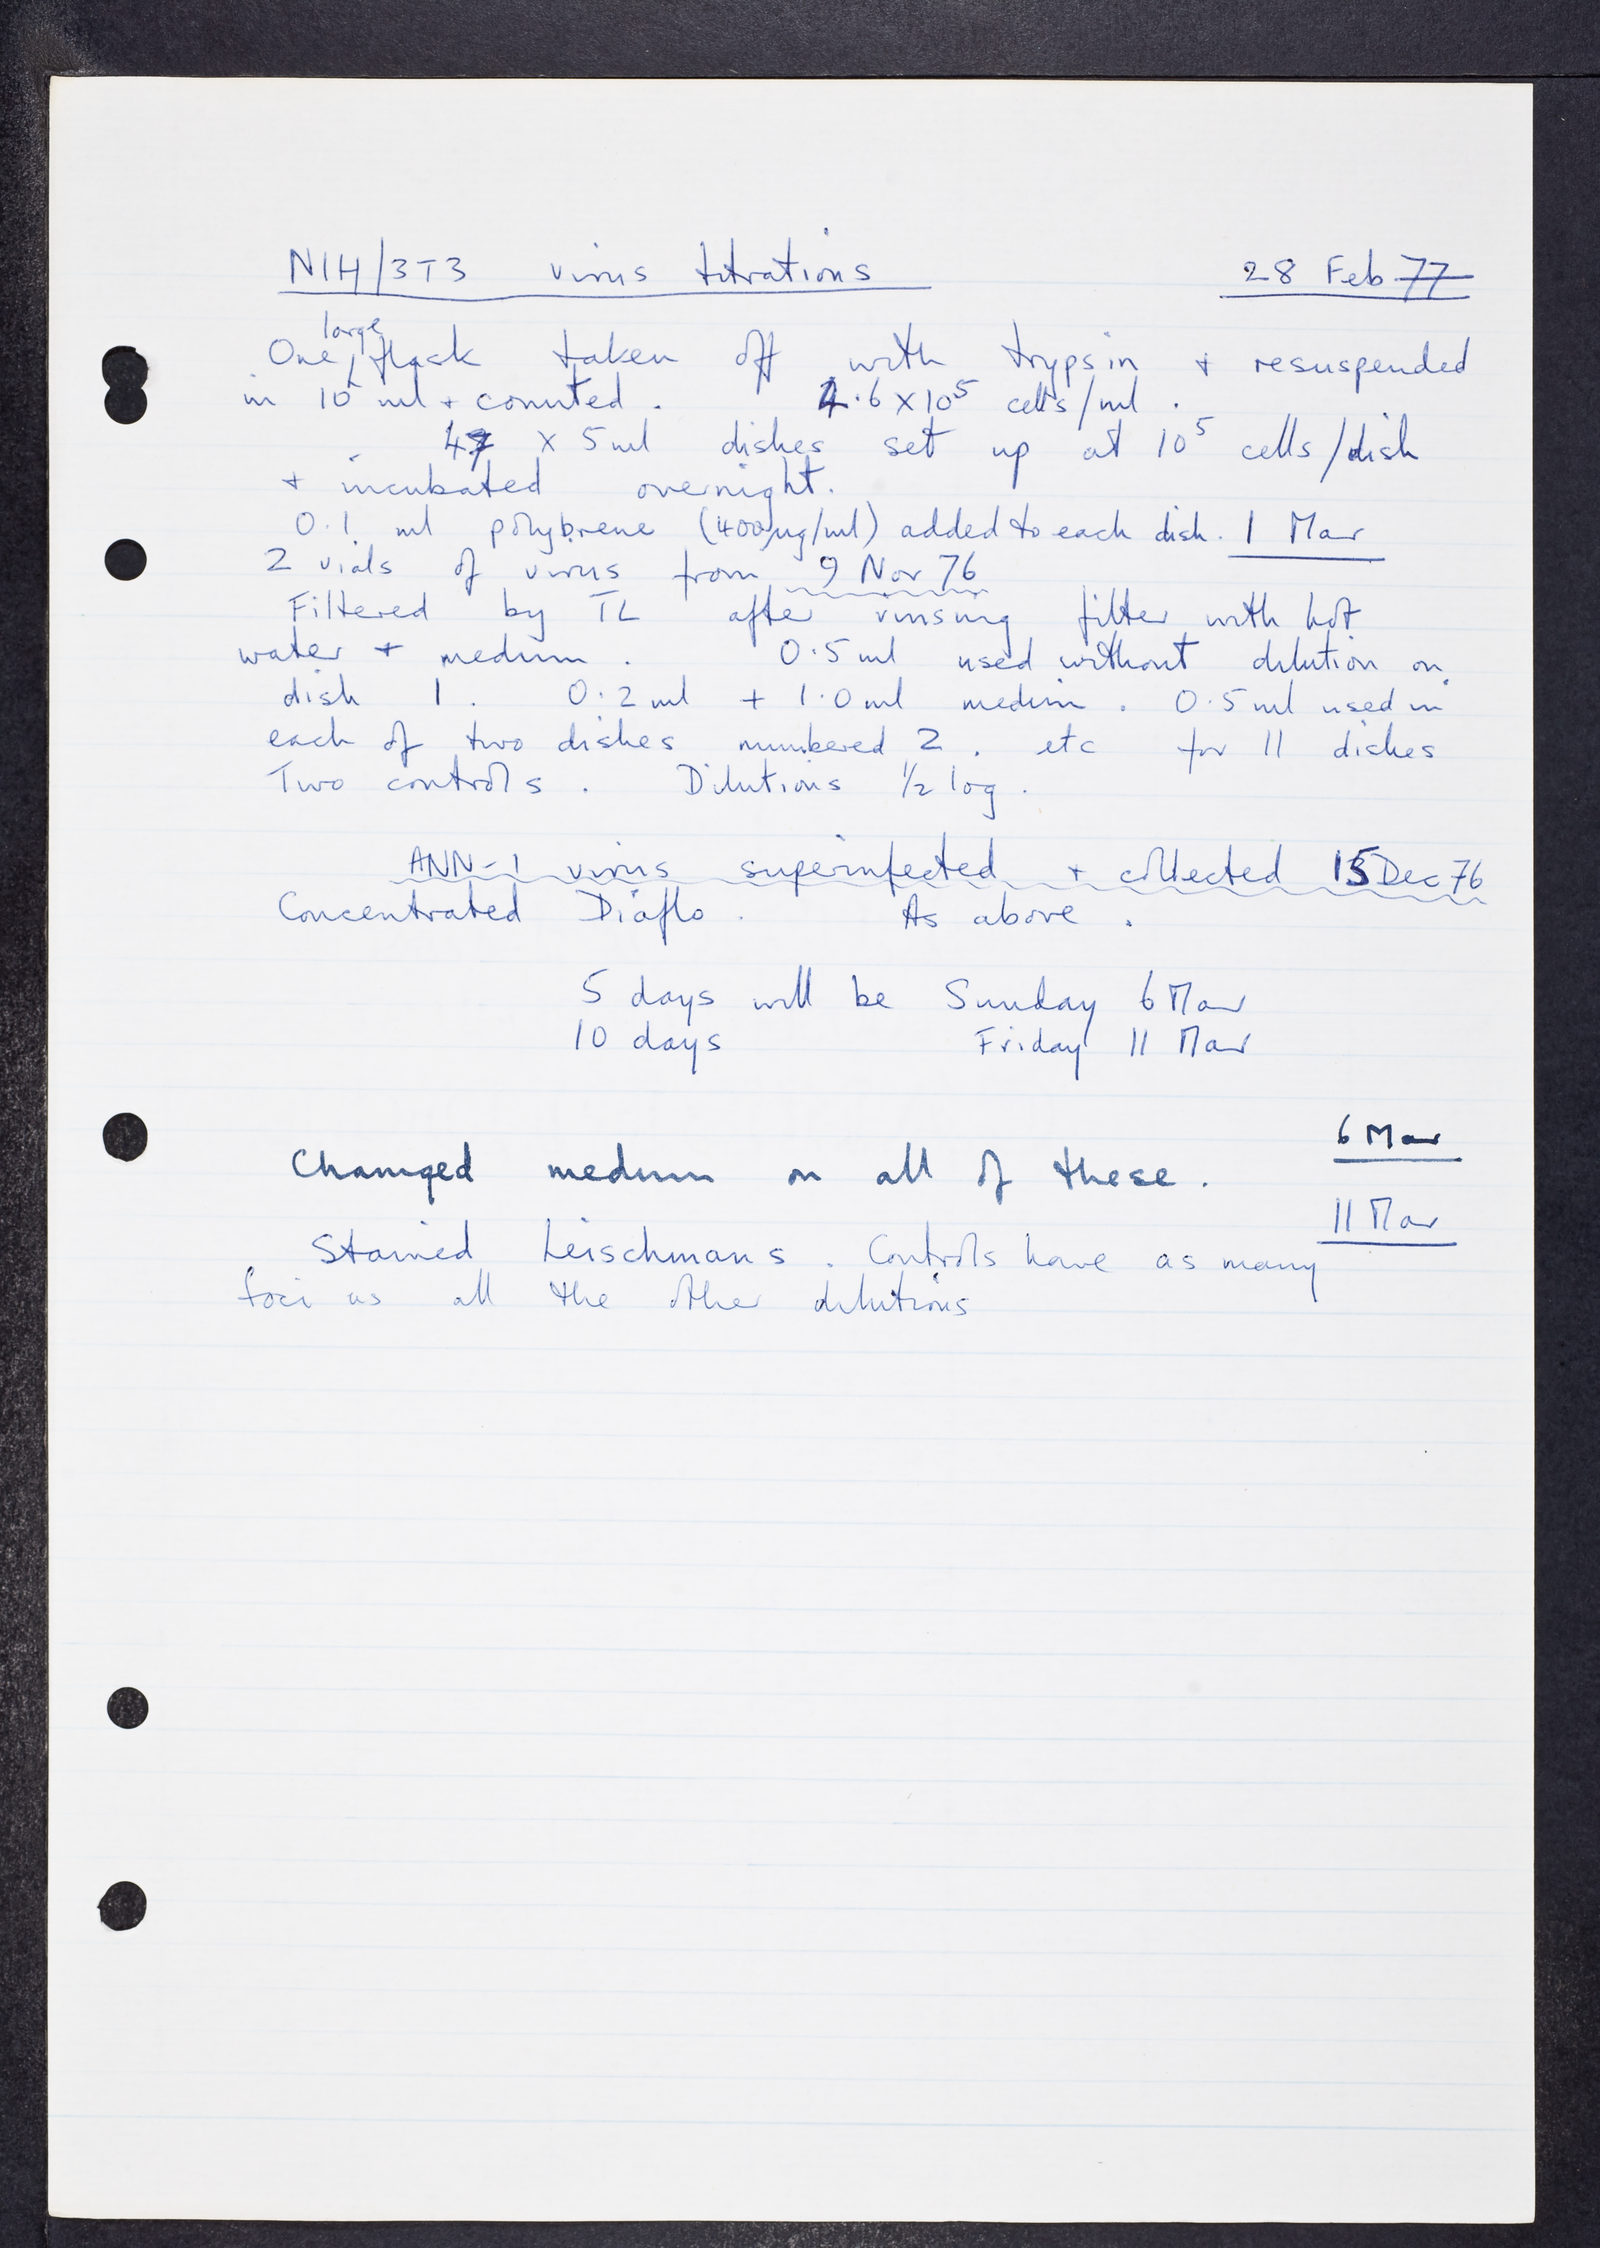 NIH/3T3 virus titrations 28 Feb 77
One large flask taken off with trypsin + resuspended
in 10 ml + counted. 4.6 x 10⁵ cells/ml.
47 x 5 ml dishes set up at 10⁵ cells/dish
+ incubated overnight.
0.1 ml polybrene (400µg/ml) added to each dish. 1 Mar
2 vials of virus from 9 Nov 76
Filtered by TL after rinsing filter with hot
water + medium. 0.5 ml used without dilution on
dish 1. 0.2 ml + 1.0 ml medium. 0.5 ml used in
each of two dishes numbered 2. etc for 11 dishes
Two controls. Dilutions ½ log.
ANN-1 virus superinfected + collected 15 Dec 76
Concentrated Diaflo. As above.
5 days will be Sunday 6 Mar
10 days Friday 11 Mar
6 Mar
Changed medium on all of these.
11 Mar
Stained Leischmans. Controls have as many
foci as all the other dilutions